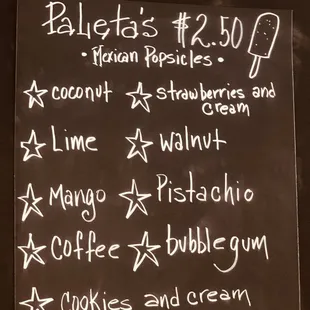 Paleta's $2.50
• Mexican Popsicles •
☆ coconut ☆ strawberries and
cream
☆ Lime ☆ walnut
☆ Mango ☆ Pistachio
☆ Coffee ☆ bubblegum
☆ Cookies and cream